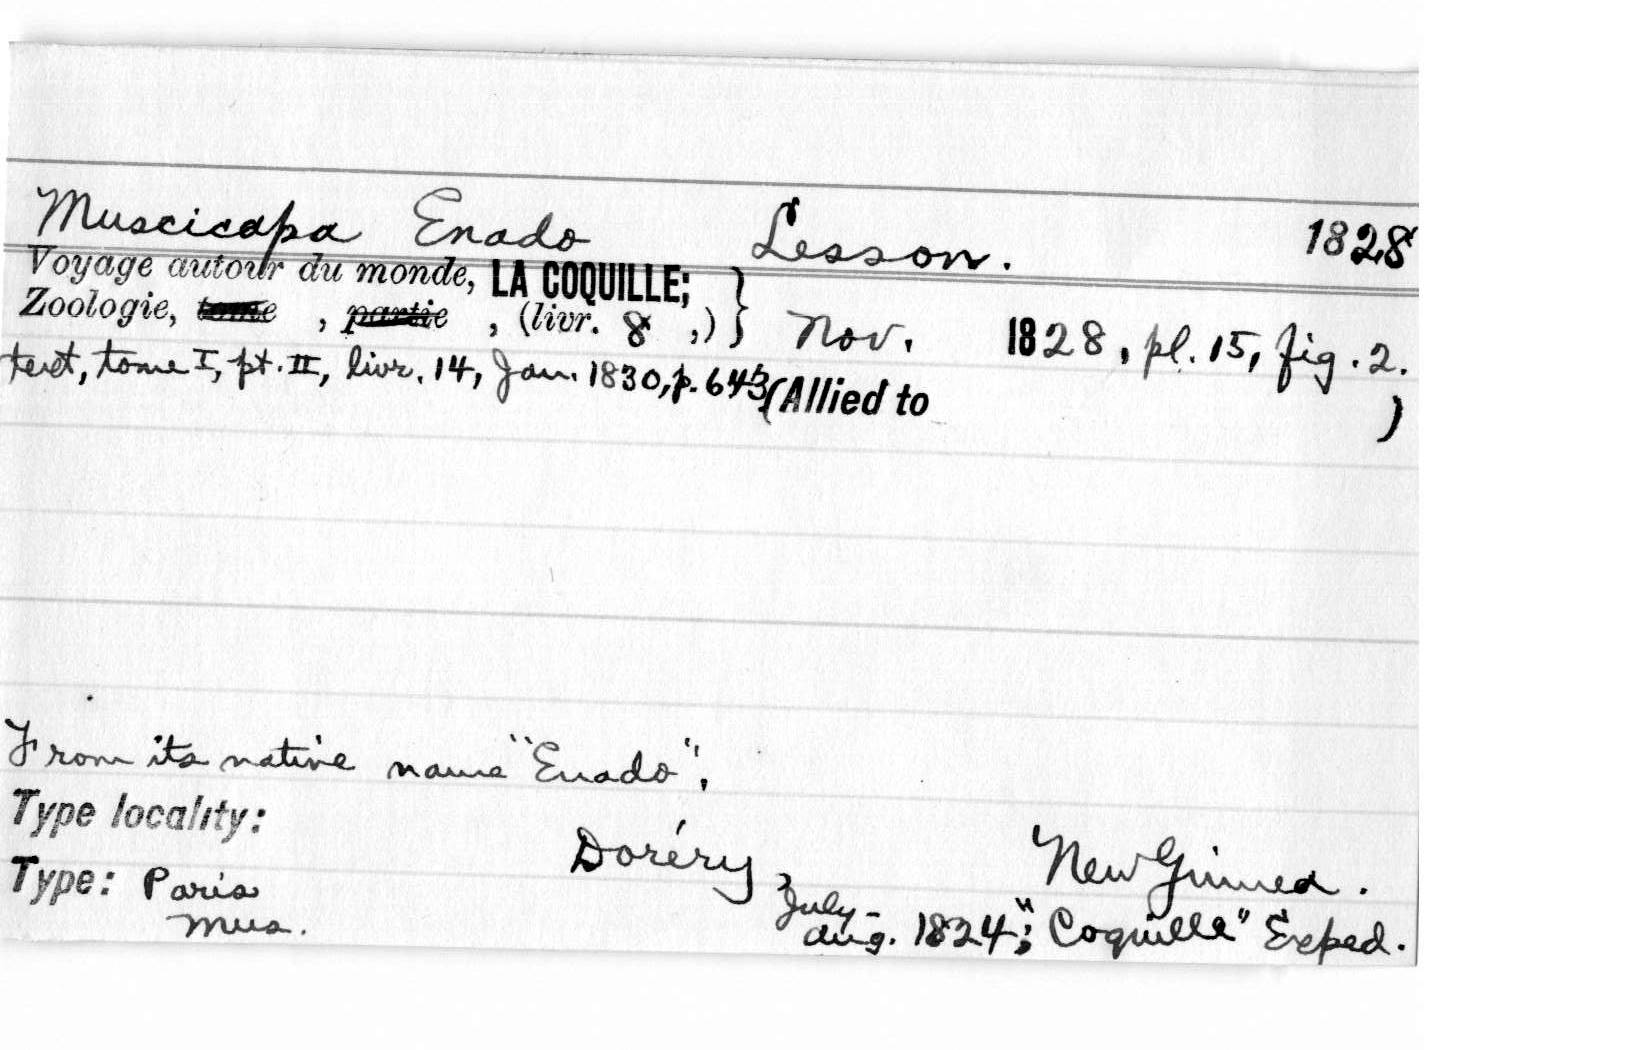 Muscicapa Enado Lesson. 1828
Voyage autour du monde, LA COQUILLE; }
Zoologie, tome , partie , (livr. 8 ,) } Nov. 1828, pl. 15, fig. 2.
text, tome I, pt. II, livr. 14, Jan. 1830, p. 643 (Allied to )
From its native name "Enado".
Type locality:
Doréry, New Guinea.
Type: Paris
Mus.
July-
Aug. 1824; "Coquille" Exped.